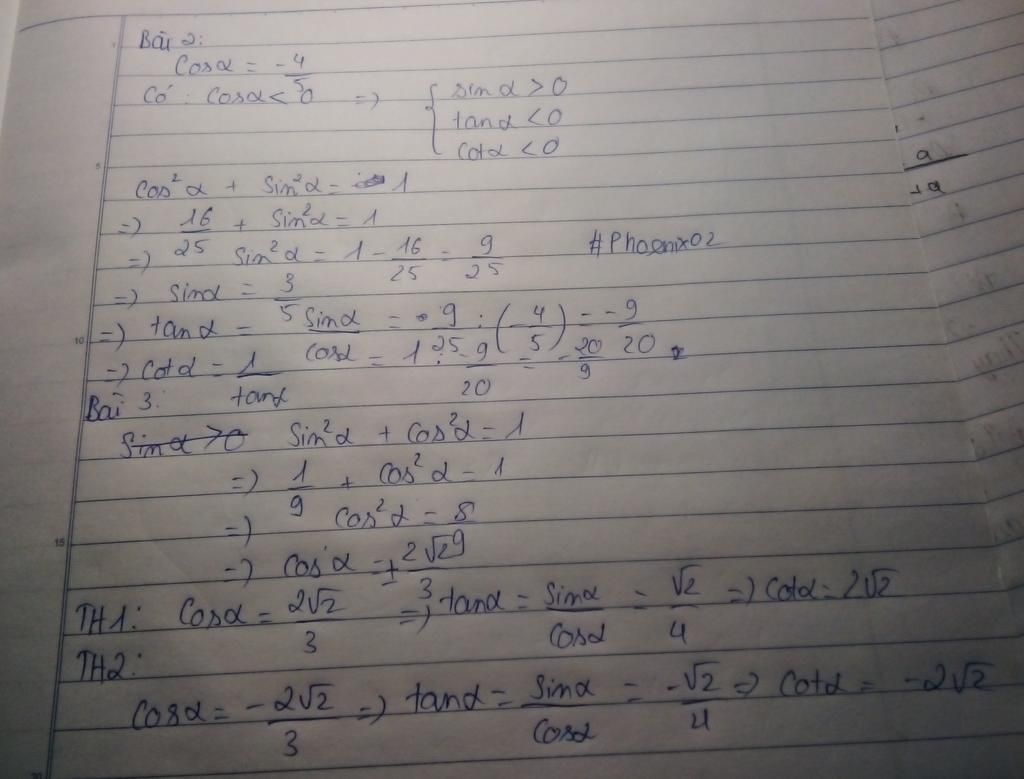 Bài 2:
Cosα = -4/5
Có: Cosα < 0 => { sinα > 0
tanα < 0
cotα < 0
Cos²α + Sin²α = 1
=> 16/25 + Sin²α = 1
=> Sin²α = 1 - 16/25 = 9/25
#Phoenix02
=> Sinα = 3/5
=> tanα = Sinα/Cosα = 9/25 : (-4/5) = -9/20
=> Cotα = 1/tanα = 1 : -9/20 = -20/9
Bài 3:
Sinα > 0 Sin²α + Cos²α = 1
=> 1/9 + Cos²α = 1
=> Cos²α = 8/9
=> Cosα = ± 2√2/3
TH1: Cosα = 2√2/3 => tanα = Sinα/Cosα = √2/4 => Cotα = 2√2
TH2:
Cosα = -2√2/3 => tanα = Sinα/Cosα = -√2/4 => Cotα = -2√2